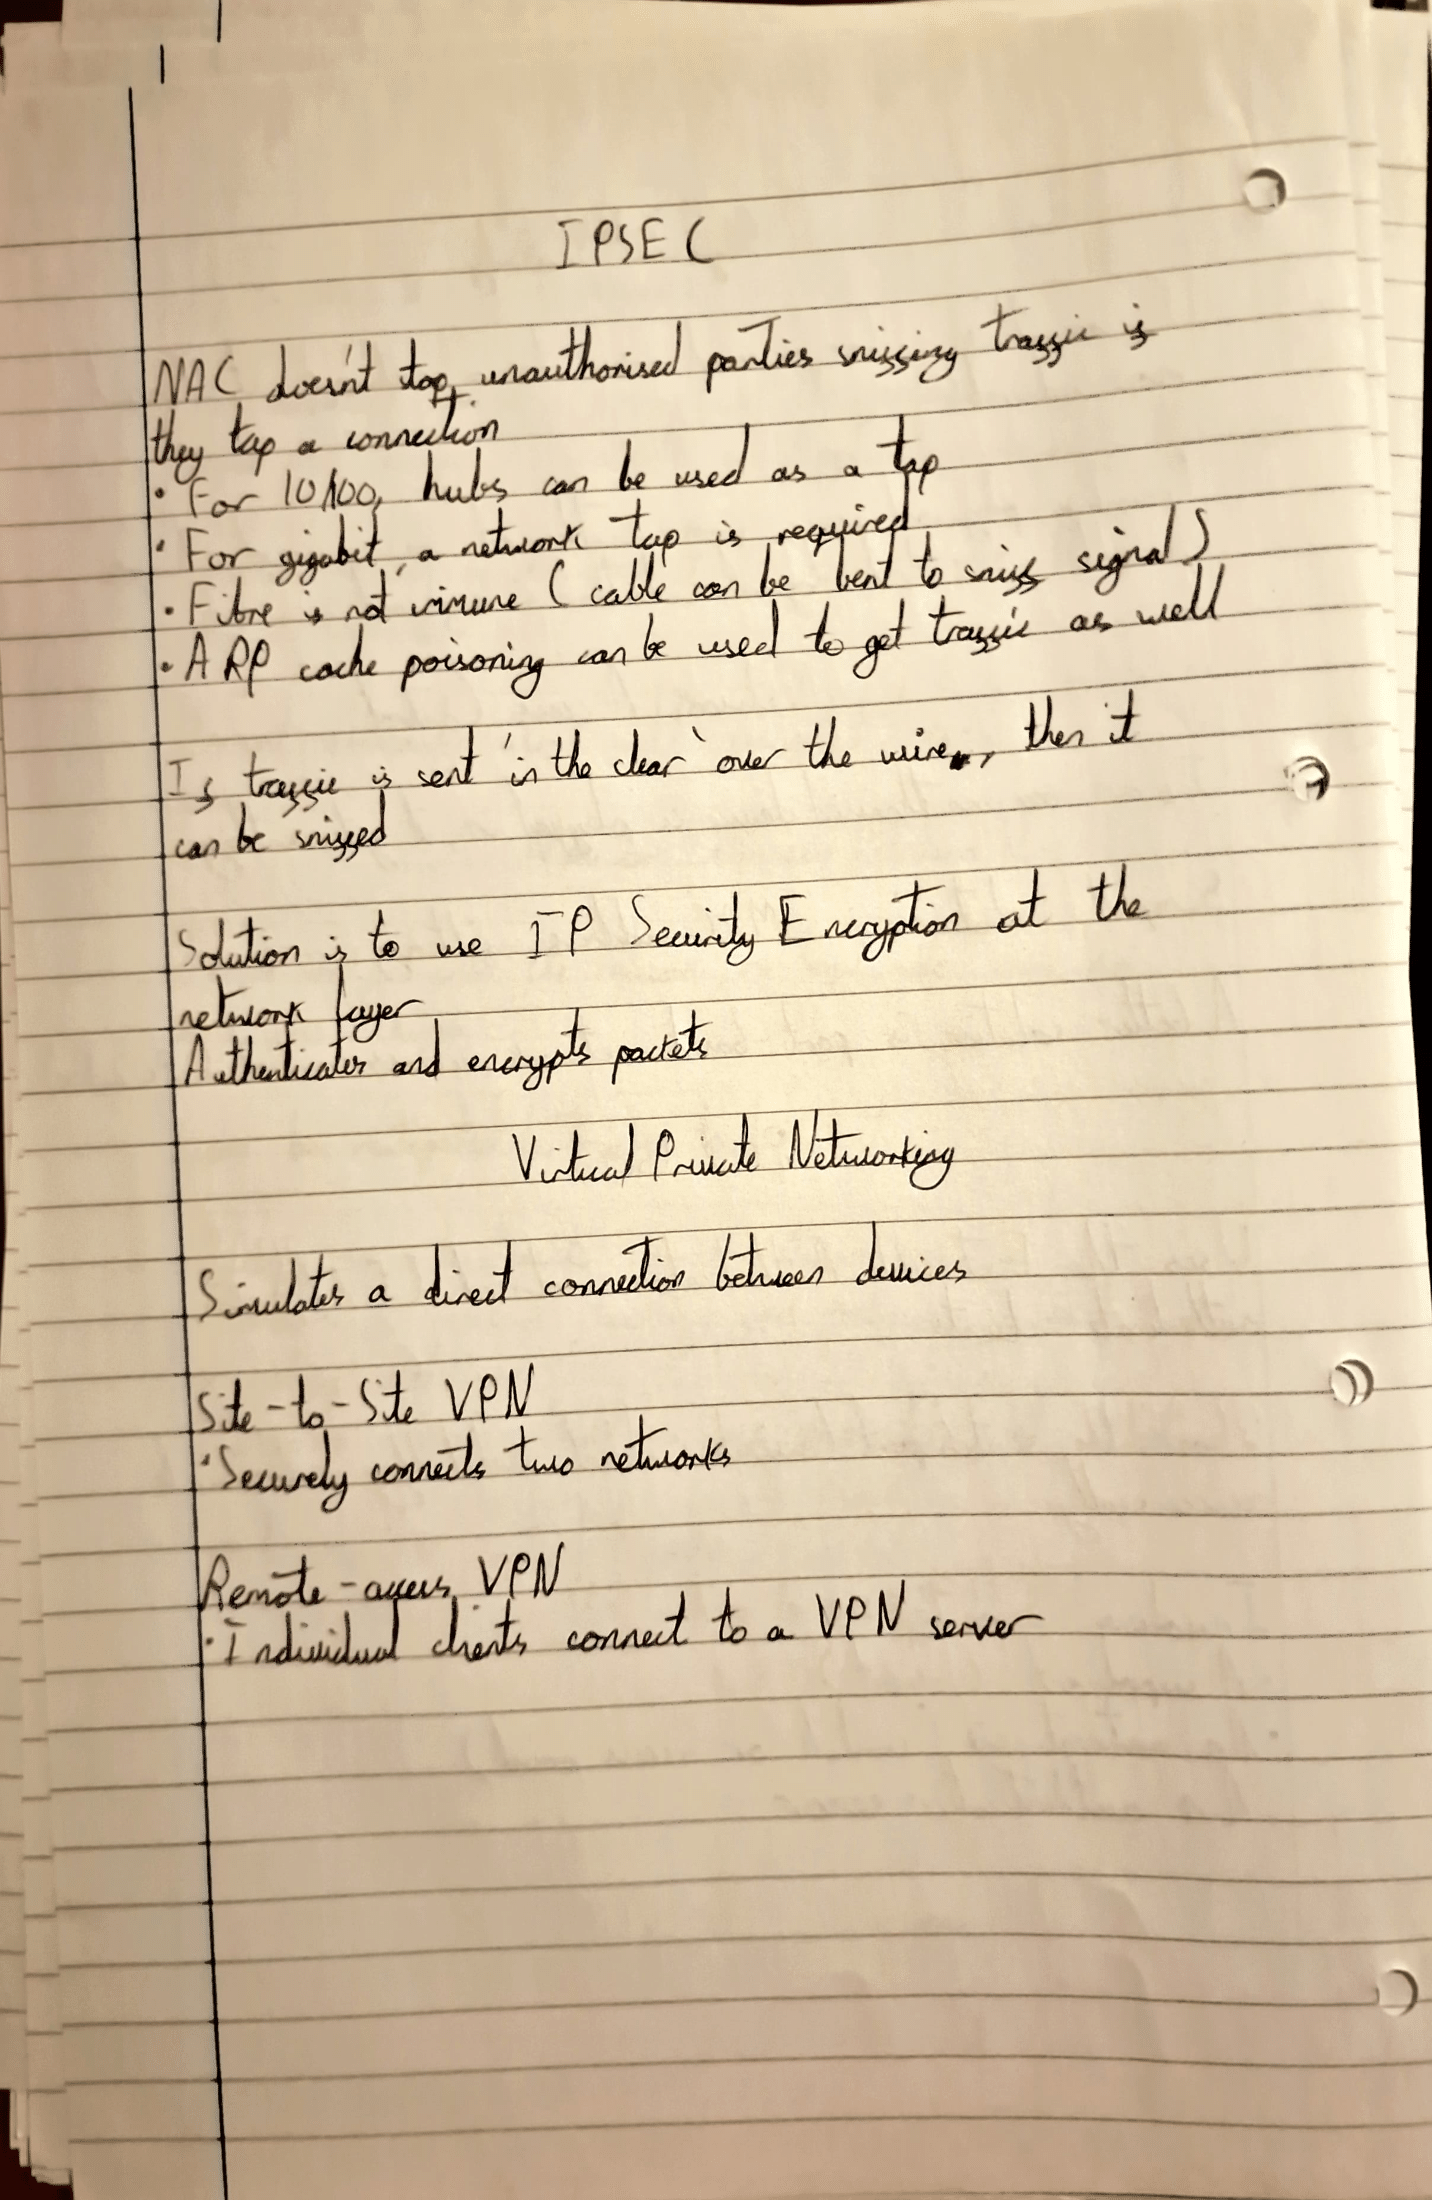 IPSEC
NAC doesn't stop unauthorised parties sniffing traffic if
they tap a connection
• For 10/100, hubs can be used as a tap
• For gigabit, a network tap is required
• Fibre is not immune (cable can be bent to sniff signal)
• ARP cache poisoning can be used to get traffic as well
If traffic is sent 'in the clear' over the wire, then it
can be sniffed
Solution is to use IP Security Encryption at the
network layer
Authenticates and encrypts packets
Virtual Private Networking
Simulates a direct connection between devices
Site-to-Site VPN
• Securely connects two networks
Remote-access VPN
• Individual clients connect to a VPN server